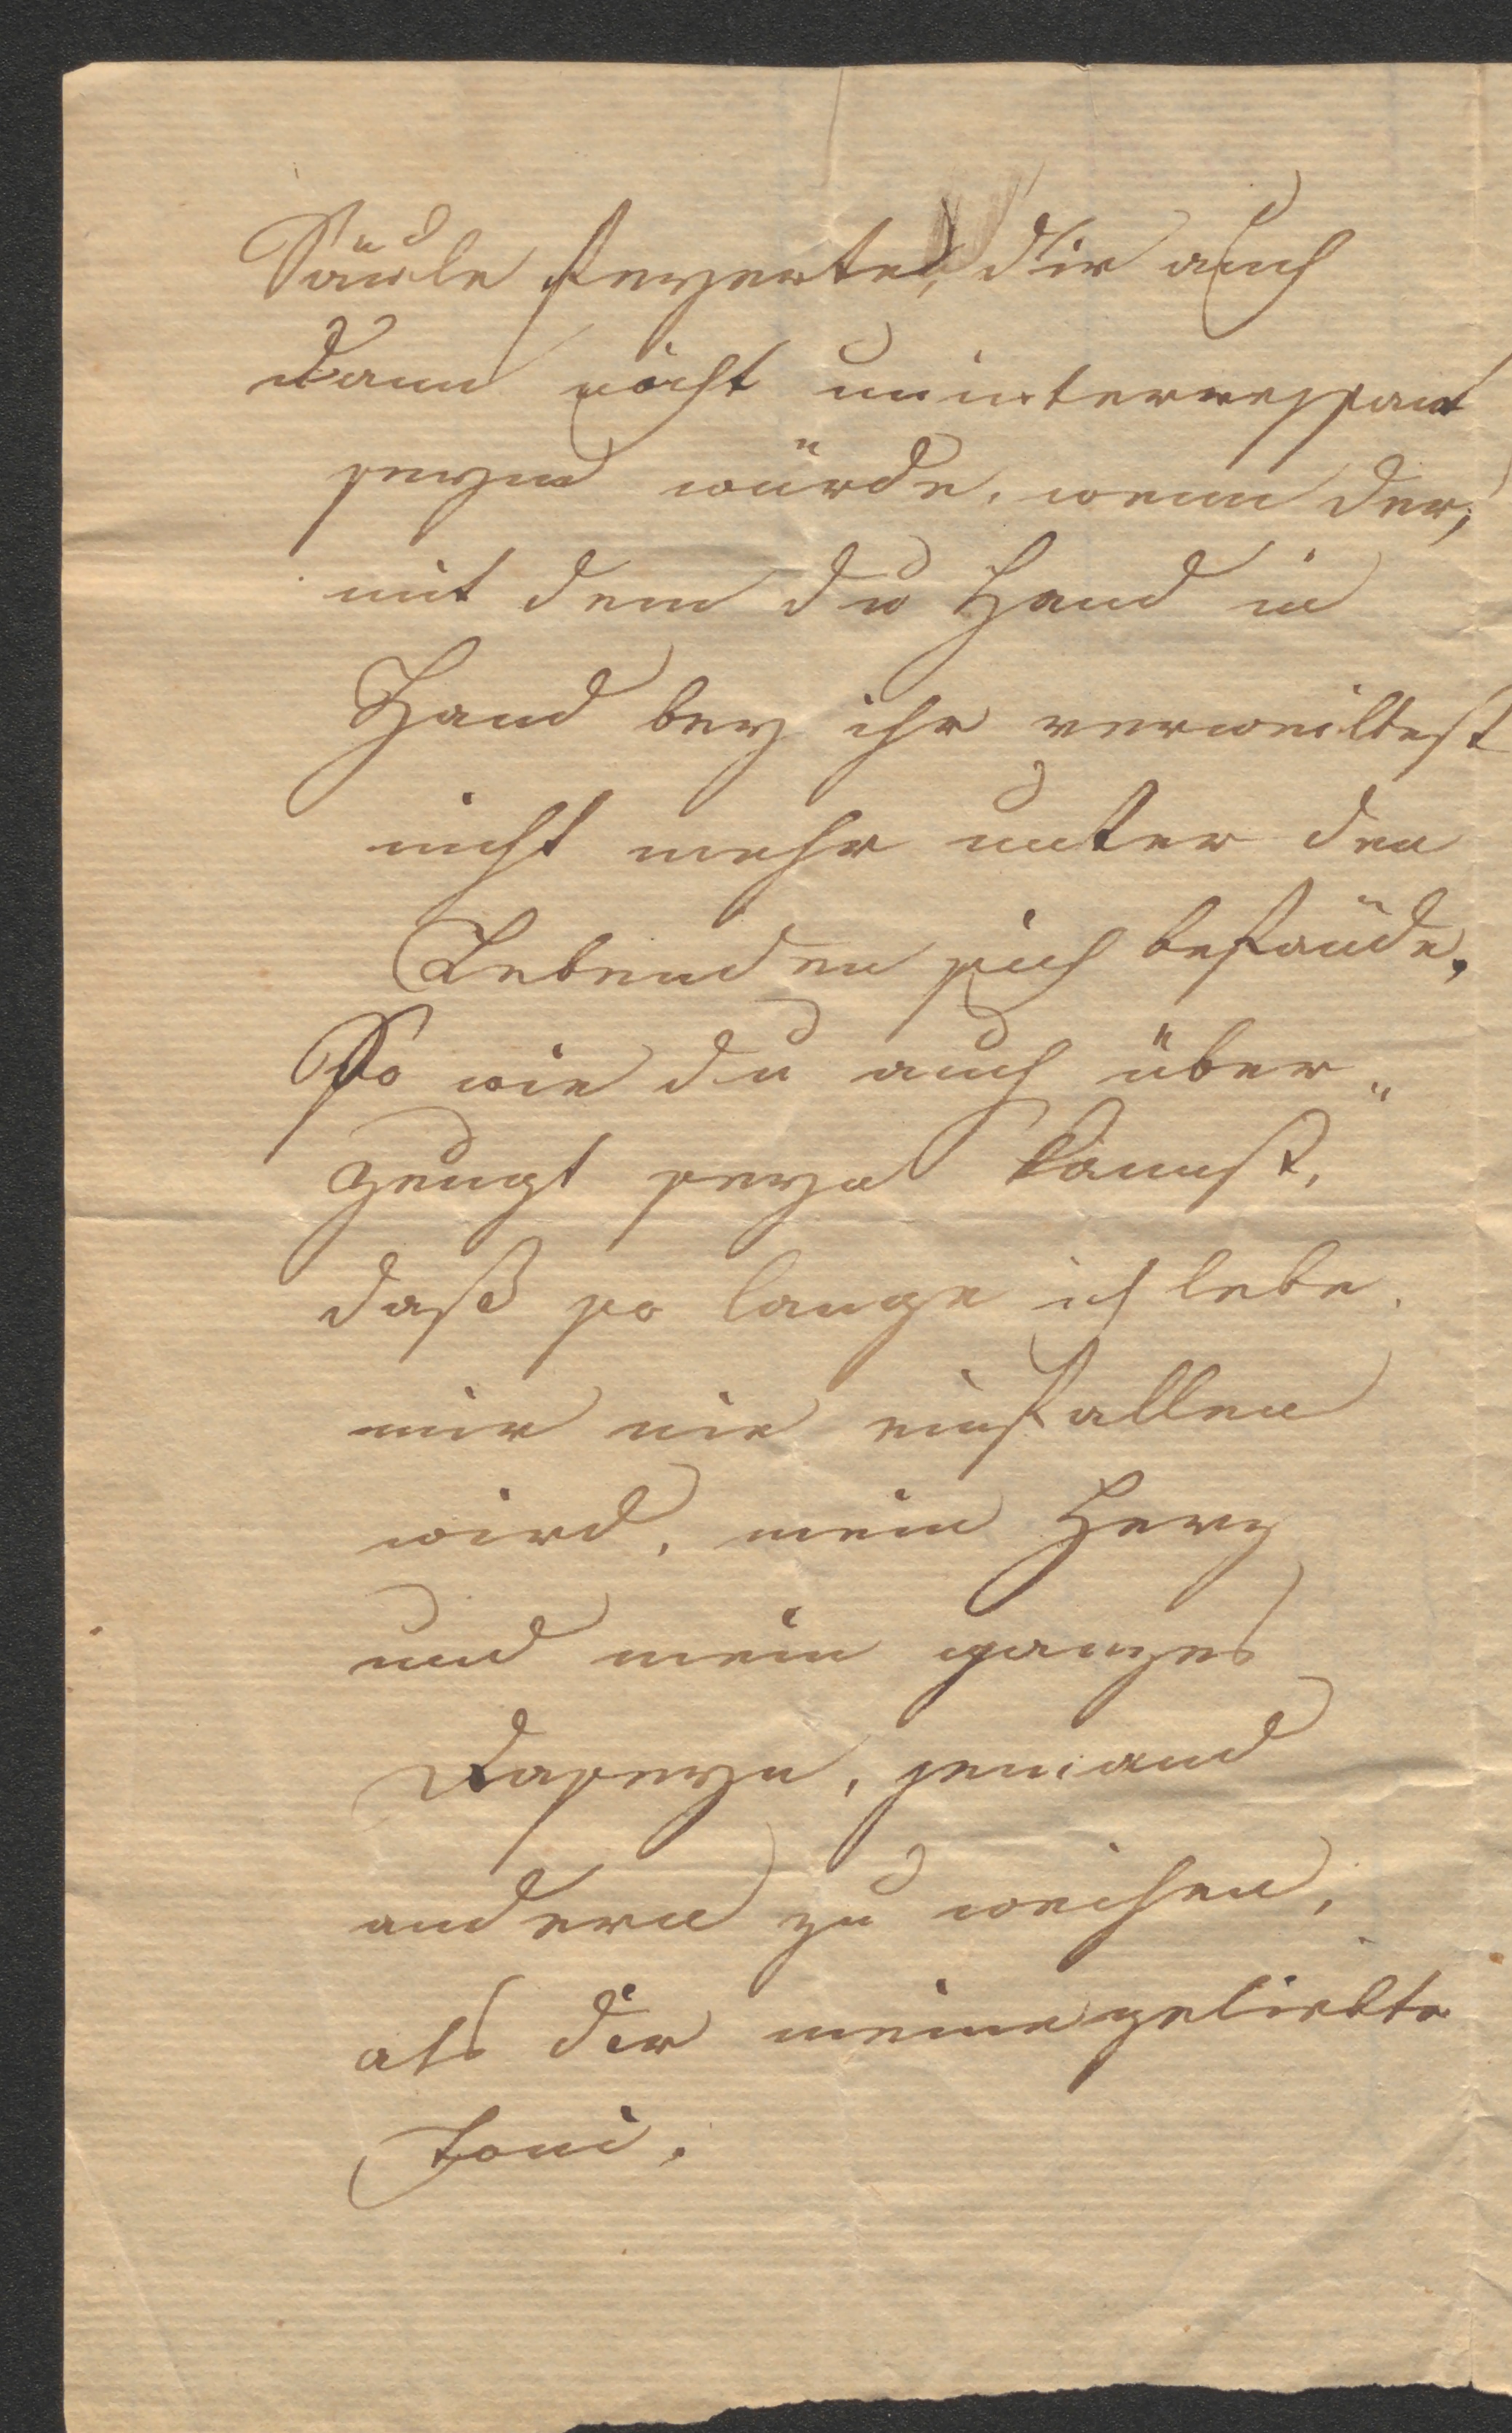 Säule feyerte, dir auch
dann nicht uninterressant
seyn würde, wenn der,
mit dem du Hand in
Hand bey ihr verweiltest
nicht mehr unter den
Lebenden sich befände.
So wie du auch über„
zeugt seyn kannst,
daß so lange ich lebe,
mir nie einfallen
wird, mein Herz
und mein ganzes
Daseyn, jemand
andern zu weihen,
als dir meine geliebte
Toni.